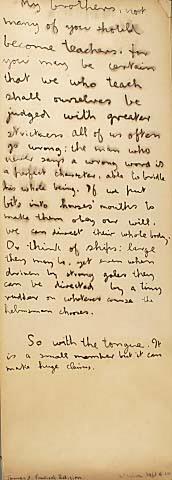 My brothers, not
many of you should
become teachers, for
you may be certain
that we who teach
shall ourselves be
judged with greater
strictness. All of us often
go wrong; the man who
never says a wrong word is
a perfect character, able to bridle
his whole being. If we put
bits into horses' mouths to
make them obey our will,
we can direct their whole body.
Or think of ships: large
they may be, yet even when
driven by strong gales they
can be directed by a tiny
rudder on whatever course the
helmsman chooses.
So with the tongue. It
is a small member but it can
make huge claims.